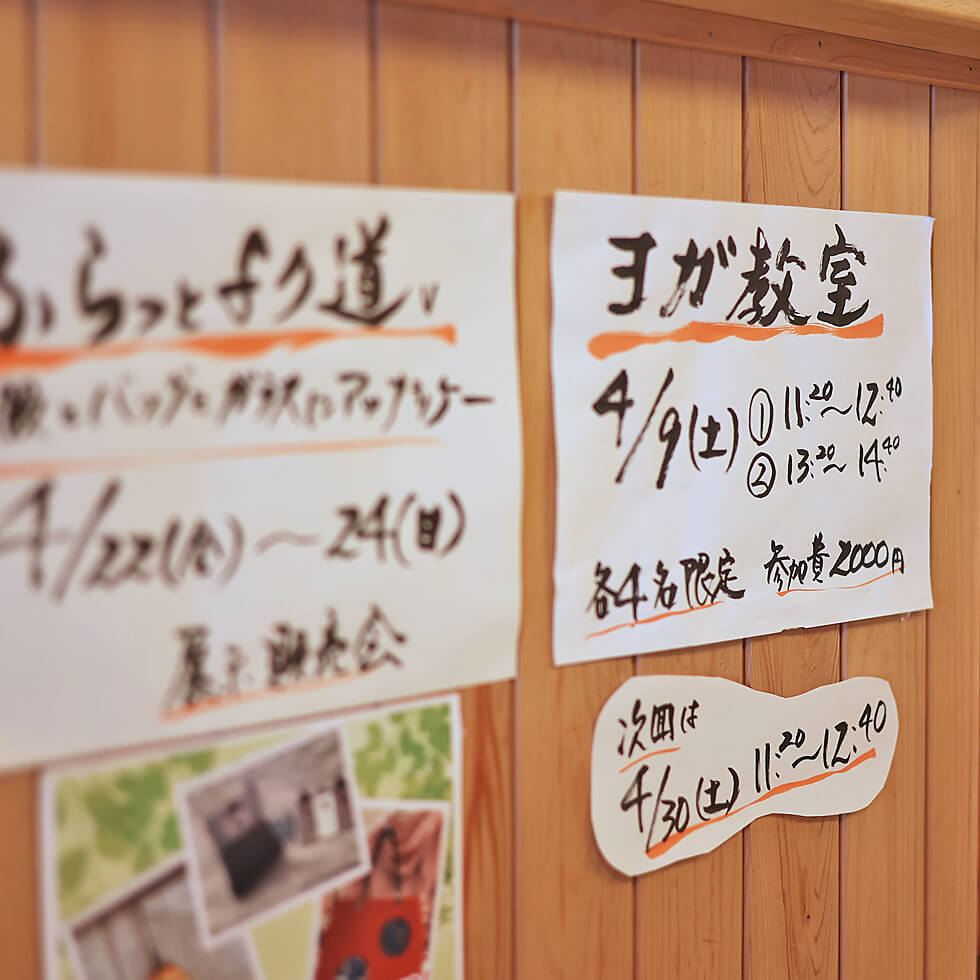 ふらっとより道
バッグとガラスにアップリケー
4/22(金)～24(日)
展示販売会
ヨガ教室
4/9(土) ① 11:20～12:40
② 13:20～14:40
各4名限定 参加費2000円
次回は
4/30(土) 11:20～12:40